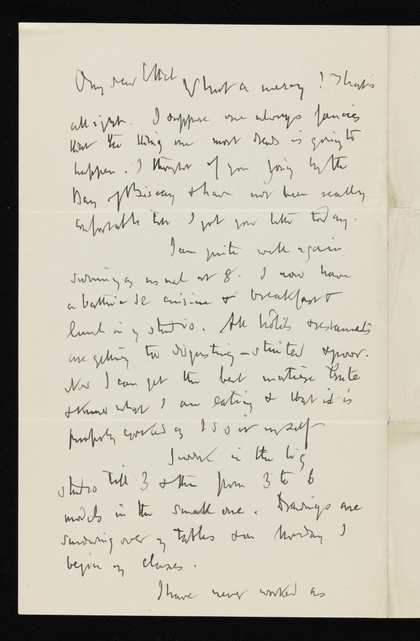 My dear Ethel What a mercy! That's
all right. I suppose one always fancies
that the thing one most dreads is going to
happen. I thought of you going by the
Bay of Biscay & have not been really
comfortable till I got your letter today.
I am quite well again
swimming as usual at 8. I now have
a batterie de cuisine & breakfast &
lunch in my studio. All hotels & restaurants
are getting too disgusting – stinted & poor.
Now I can get the best matière brute
& know what I am eating & that it is
properly cooked as I do it myself
I work in the big
studio till 3 & then from 3 to 6
models in the small one. Drawings are
swarming over my tables & on Monday I
begin my classes.
I have never worked as